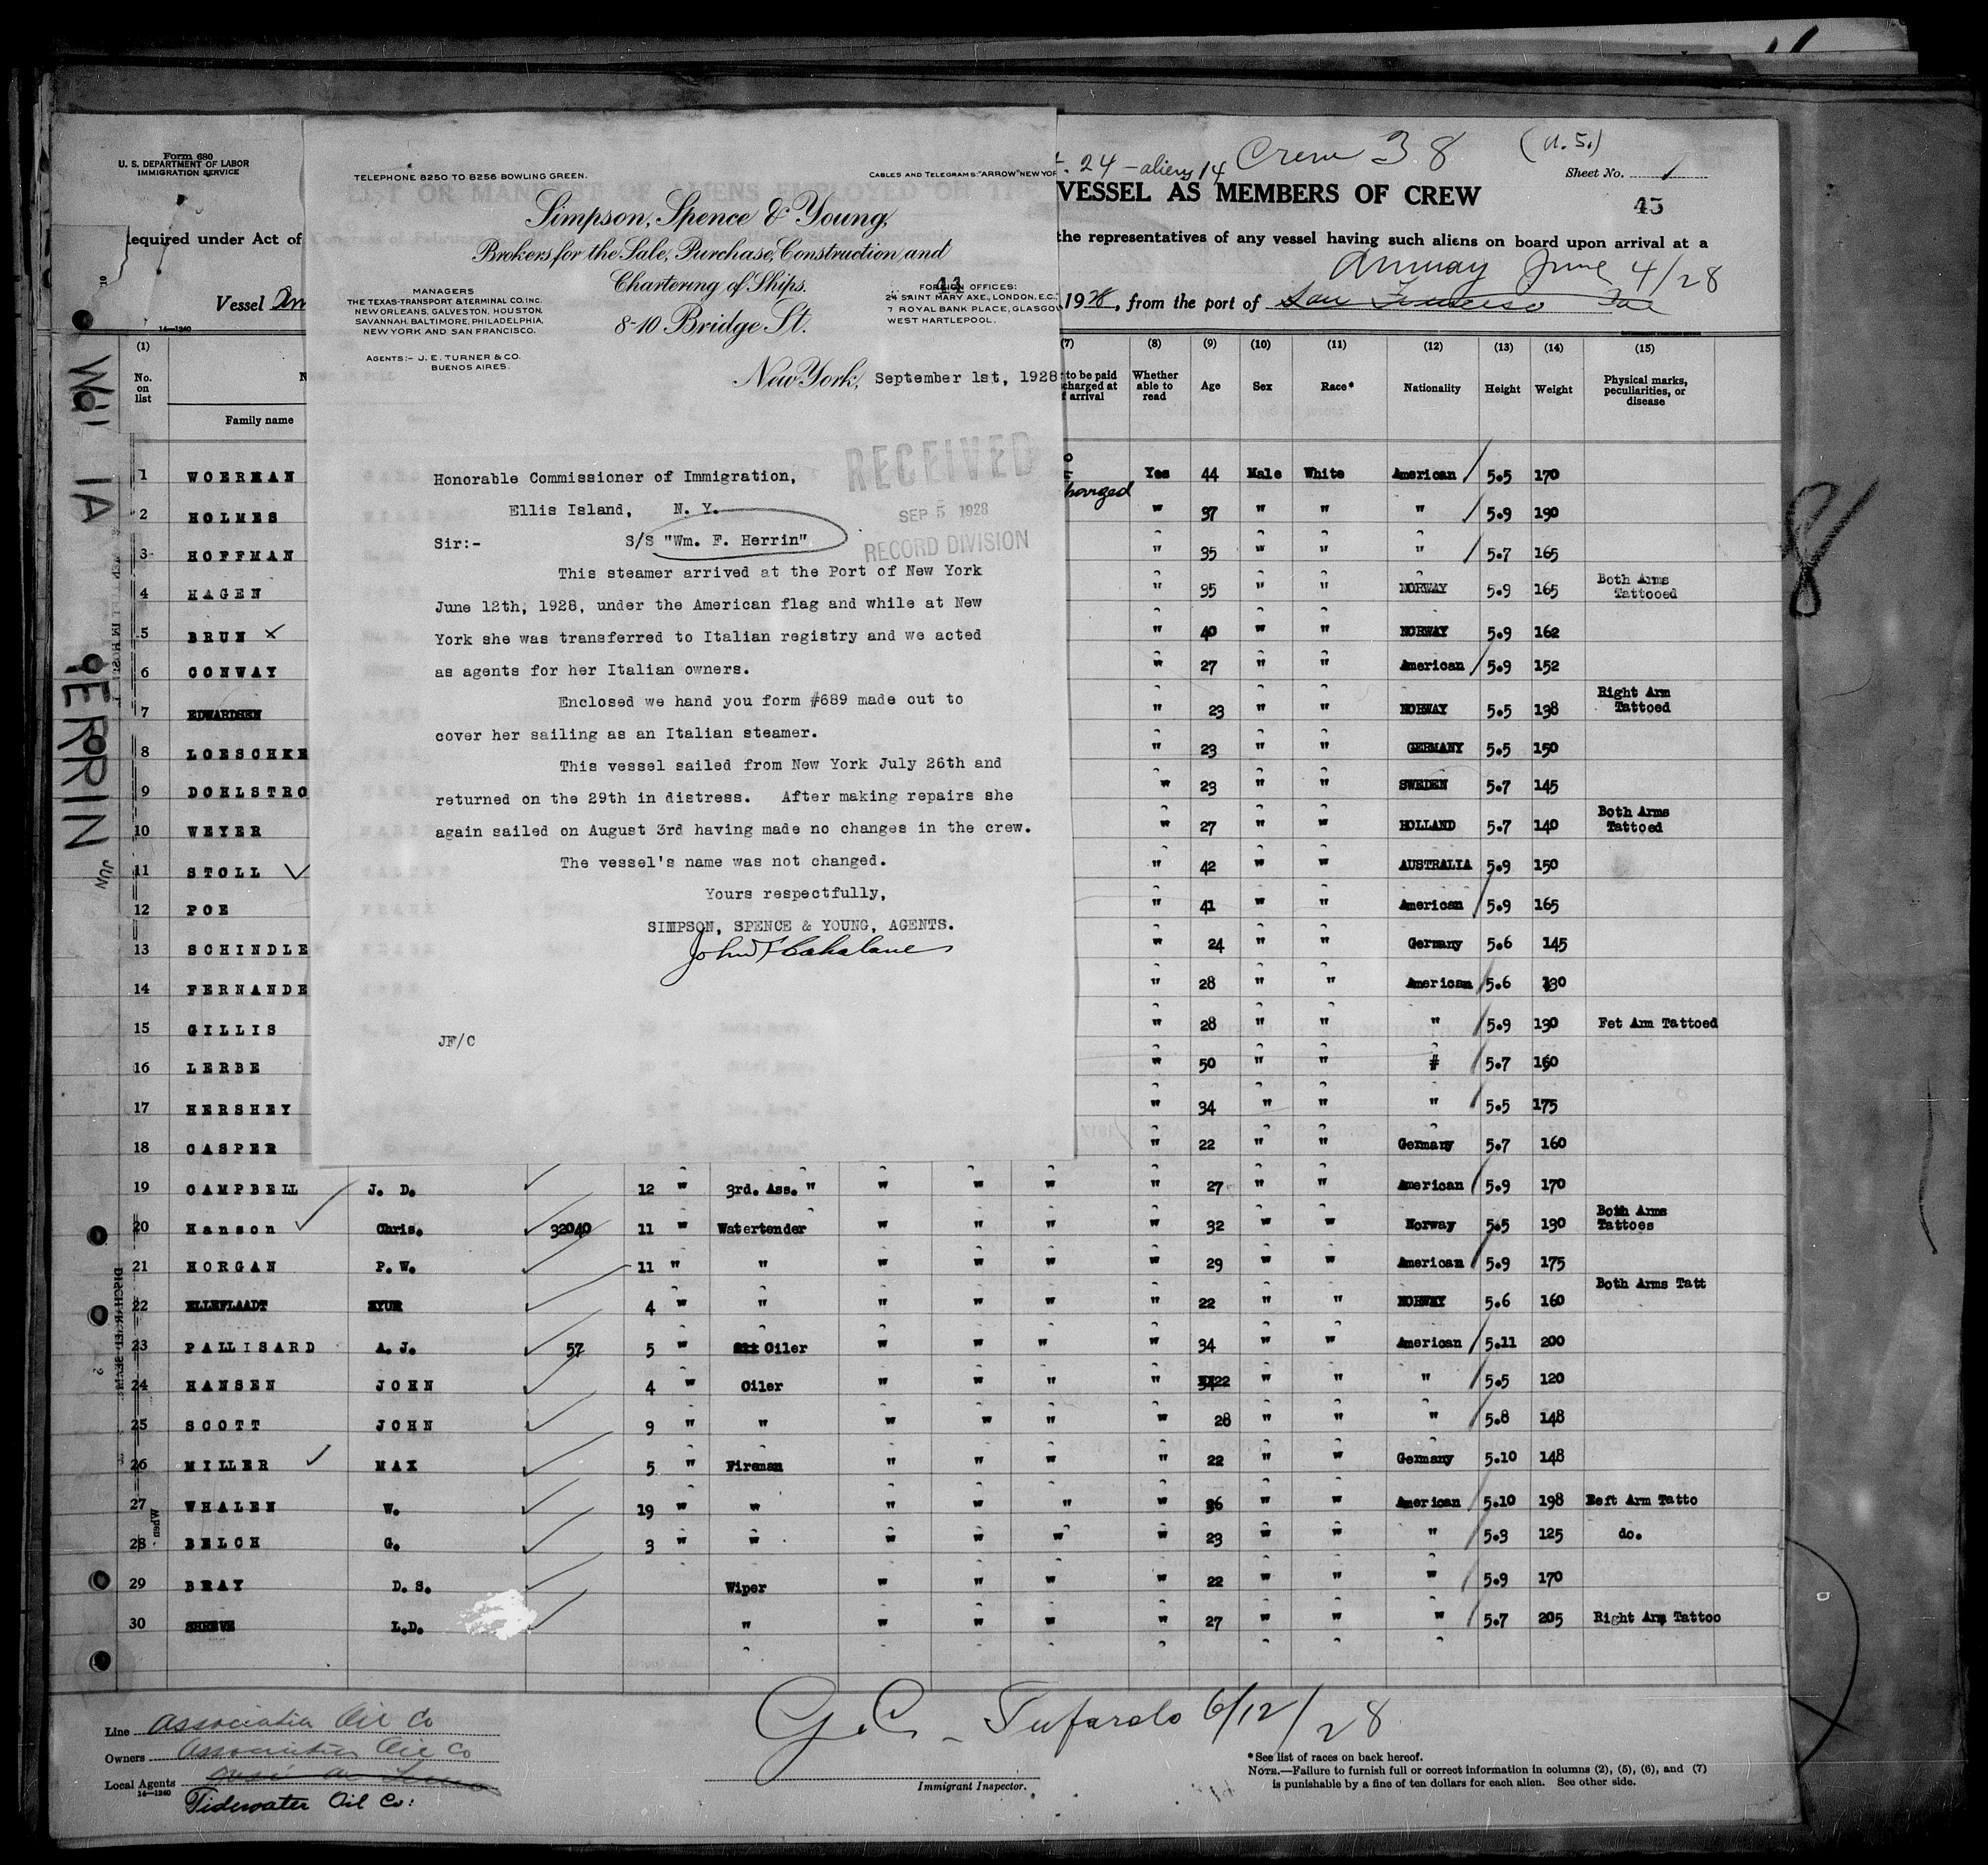 Form 680
U. S. DEPARTMENT OF LABOR
IMMIGRATION SERVICE
24 - aliens 14 Crew 38 (U.S.)
Sheet No. 1
VESSEL AS MEMBERS OF CREW
45
Required under Act of
the representatives of any vessel having such aliens on board upon arrival at a
June 4/28
Vessel
1928, from the port of San Francisco
14—1240
TELEPHONE 8250 TO 8256 BOWLING GREEN.
CABLES AND TELEGRAMS: "ARROW" NEW YOR
Simpson, Spence & Young,
Brokers for the Sale, Purchase, Construction and
Chartering of Ships.
8-10 Bridge St.
44
MANAGERS
THE TEXAS-TRANSPORT & TERMINAL CO. INC.
NEW ORLEANS, GALVESTON, HOUSTON,
SAVANNAH, BALTIMORE, PHILADELPHIA,
NEW YORK AND SAN FRANCISCO.
AGENTS:- J. E. TURNER & CO.
BUENOS AIRES.
FOREIGN OFFICES:
24 SAINT MARY AXE, LONDON, E.C.
7 ROYAL BANK PLACE, GLASGOW
WEST HARTLEPOOL.
New York, September 1st, 1928
RECEIVED
SEP 5 1928
RECORD DIVISION
Honorable Commissioner of Immigration,
Ellis Island, N. Y.
Sir:- S/S "Wm. F. Herrin"
This steamer arrived at the Port of New York
June 12th, 1928, under the American flag and while at New
York she was transferred to Italian registry and we acted
as agents for her Italian owners.
Enclosed we hand you form #689 made out to
cover her sailing as an Italian steamer.
This vessel sailed from New York July 26th and
returned on the 29th in distress. After making repairs she
again sailed on August 3rd having made no changes in the crew.
The vessel's name was not changed.
Yours respectfully,
SIMPSON, SPENCE & YOUNG, AGENTS.
JF/C
(1) (7) (8) (9) (10) (11) (12) (13) (14) (15)
No. on list
Family name
to be paid
charged at
arrival
Whether able to read
Age
Sex
Race*
Nationality
Height
Weight
Physical marks, peculiarities, or disease
1 WOERMAN Yes 44 Male White American 5.5 170
2 HOLMES " 37 " " " 5.9 190
3 HOFFMAN " 35 " " " 5.7 165
4 HAGEN " 35 " " NORWAY 5.9 165 Both Arms Tattooed
5 BRUN " 40 " " NORWAY 5.9 162
6 CONWAY " 27 " " American 5.9 152
7 EDWARDSEN " 23 " " NORWAY 5.5 138 Right Arm Tattoed
8 LOESCHKE " 23 " " GERMANY 5.5 150
9 DOHLSTRO " 23 " " SWEDEN 5.7 145
10 WEYER " 27 " " HOLLAND 5.7 140 Both Arms Tattoed
11 STOLL " 42 " " AUSTRALIA 5.9 150
12 POE " 41 " " American 5.9 165
13 SCHINDLE " 24 " " Germany 5.6 145
14 FERNANDE " 28 " " American 5.6 130
15 GILLIS " 28 " " " 5.9 190 Fet Arm Tattoed
16 LERBE " 50 " " # 5.7 160
17 HERSHEY " 34 " " " 5.5 175
18 CASPER " 22 " " Germany 5.7 160
19 CAMPBELL J. D. 12 " 3rd. Ass. " " " " " 27 " " American 5.9 170
20 Hanson Chris. 32040 11 " Watertender " " " " 32 " " Norway 5.5 130 Both Arms Tattoes
21 HORGAN P. W. 11 " " " " " " 29 " " American 5.9 175
22 ELLEFLAADT 4 " " " " " " 22 " " NORWAY 5.6 160 Both Arms Tatt
23 PALLISARD A. J. 57 5 " Oiler " " " " 34 " " American 5.11 200
24 HANSEN JOHN 4 " Oiler " " " " 22 " " " 5.5 120
25 SCOTT JOHN 9 " " " " " " 28 " " " 5.8 148
26 MILLER MAX 5 " Fireman " " " " 22 " " Germany 5.10 148
27 WHALEN W. 19 " " " " " " 36 " " American 5.10 198 Beft Arm Tatto
28 BELCH G. 3 " " " " " " 23 " " " 5.3 125 do.
29 BRAY D. S. Wiper " " " " 22 " " " 5.9 170
30 SHREVE L.D. " " " " " 27 " " " 5.7 205 Right Arm Tattoo
HERRIN
JUN
Line Associated Oil Co
Owners Associated Oil Co
Local Agents
14—1240
Tidewater Oil Co:
6/12/28
Immigrant Inspector.
* See list of races on back hereof.
NOTE.—Failure to furnish full or correct information in columns (2), (5), (6), and (7)
is punishable by a fine of ten dollars for each alien. See other side.